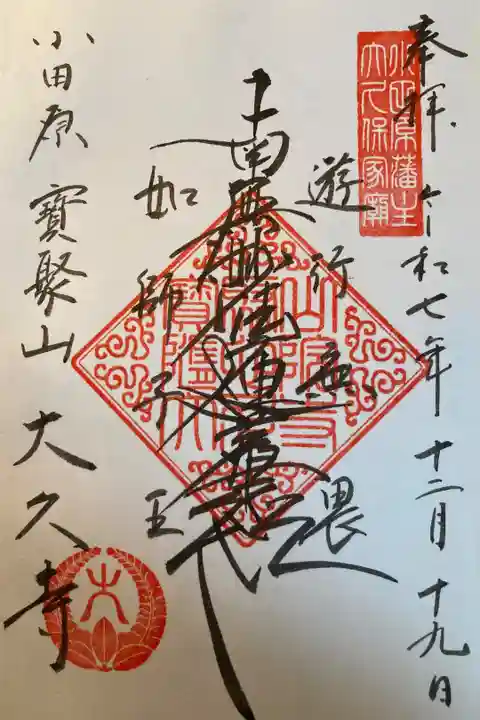 奉拝 令和七年 十二月 十九日
小田原藩主
大久保家廟
遊行無畏
南無妙法蓮華経
如師子王
小田原 寶聚山 大久寺
大